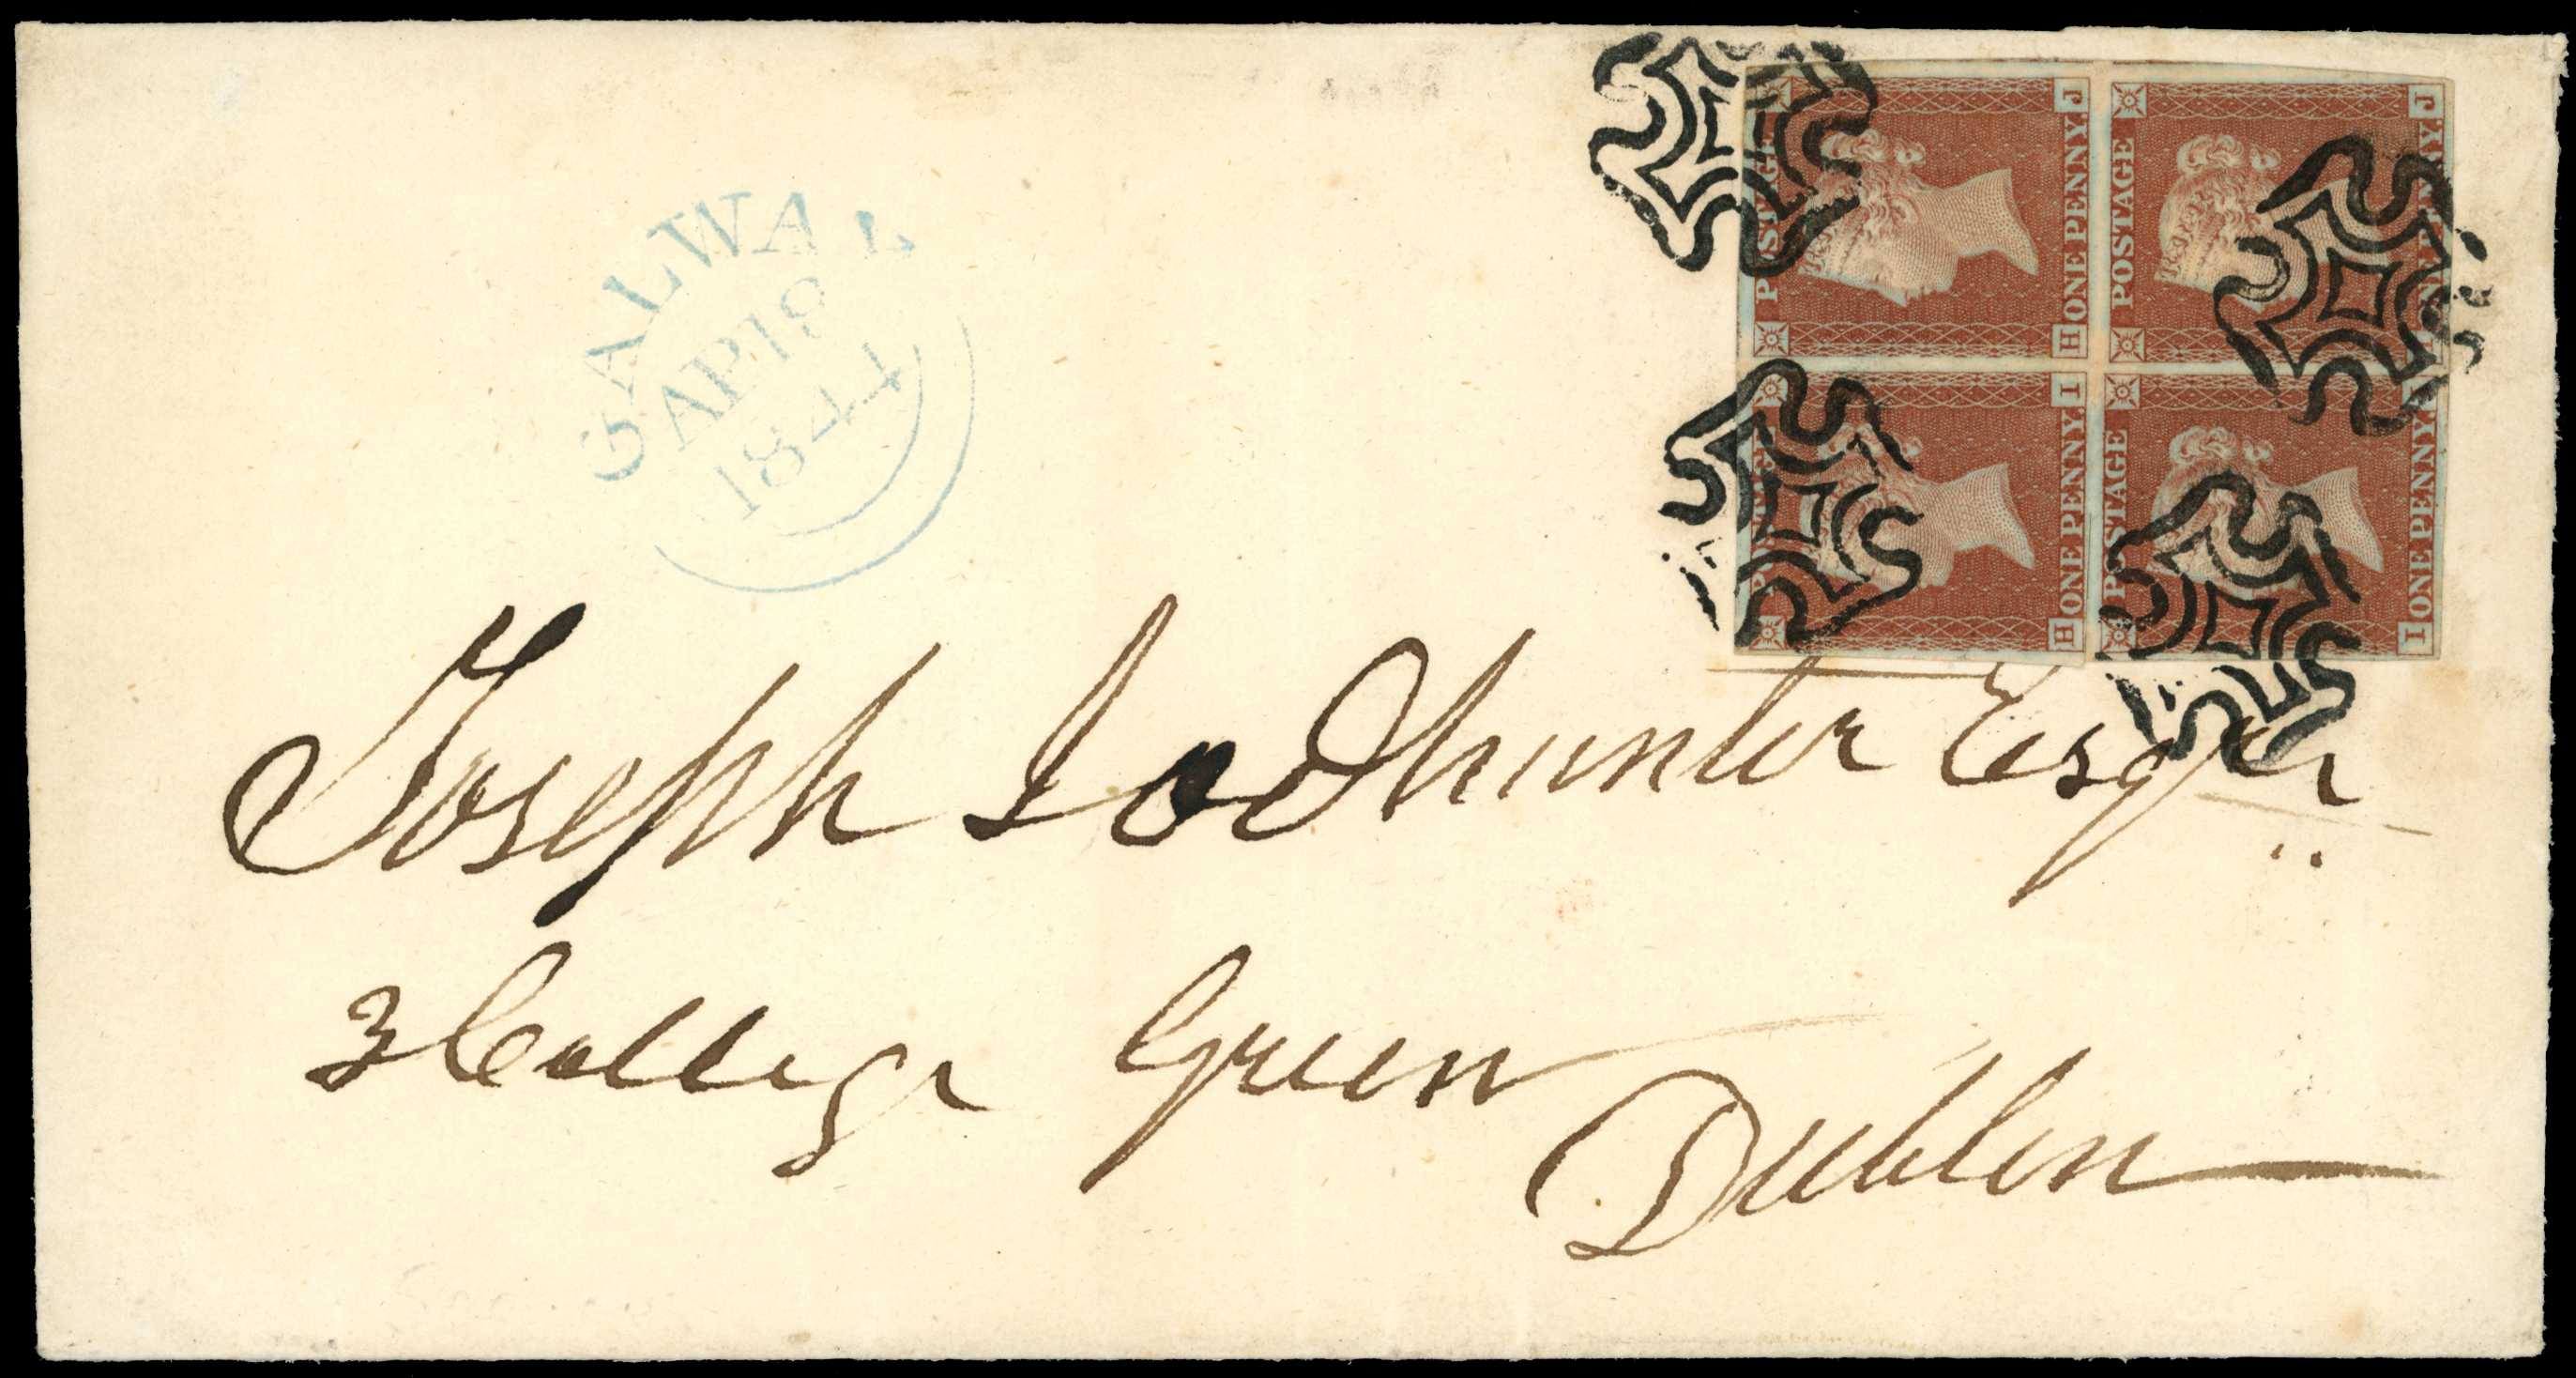 GALWAY
AP 18
1844
POSTAGE
ONE PENNY.
H
J
POSTAGE
ONE PENNY.
J
POSTAGE
ONE PENNY.
H
I
POSTAGE
ONE PENNY
I
Joseph Todhunter Esqr
3 College Green
Dublin